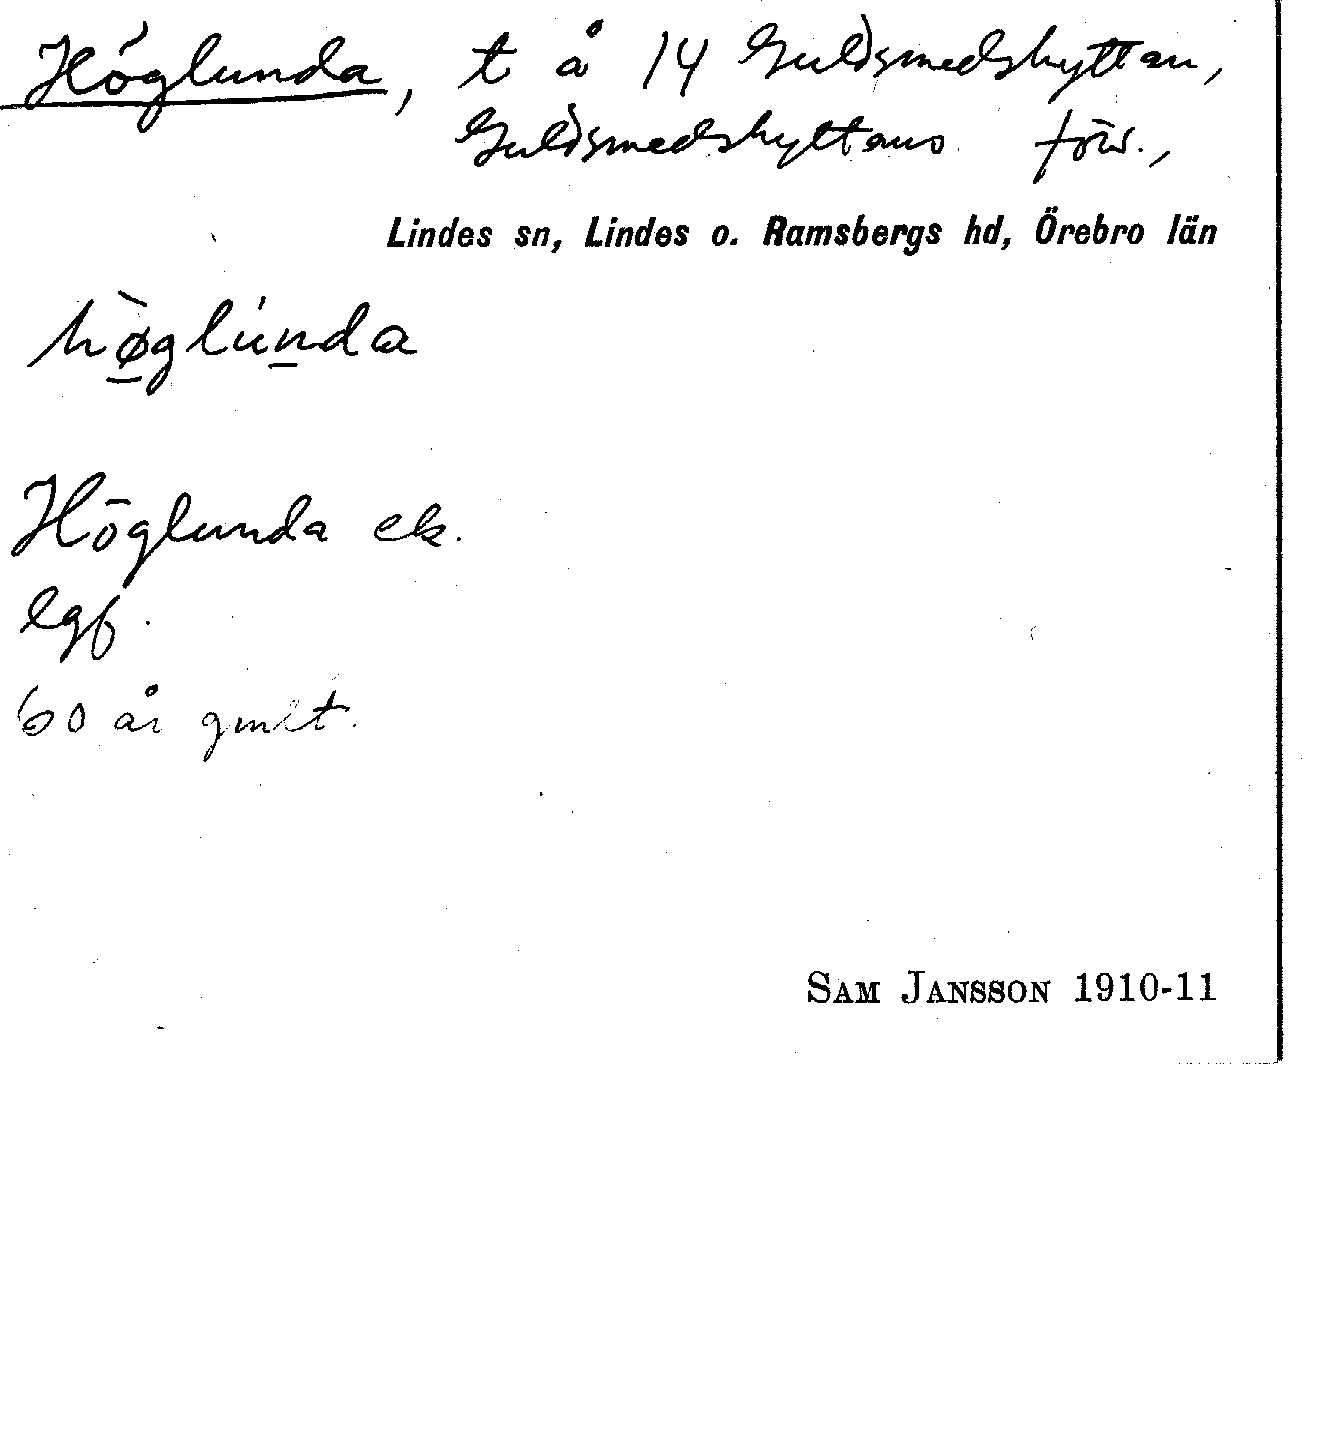 Höglunda, t å 14 Guldsmedshyttan,
Guldsmedshyttans förs.,
Lindes sn, Lindes o. Ramsbergs hd, Örebro län
hø̲̀glún̲da
Höglunda ek.
lgf.
60 år gmlt.
SAM JANSSON 1910-11